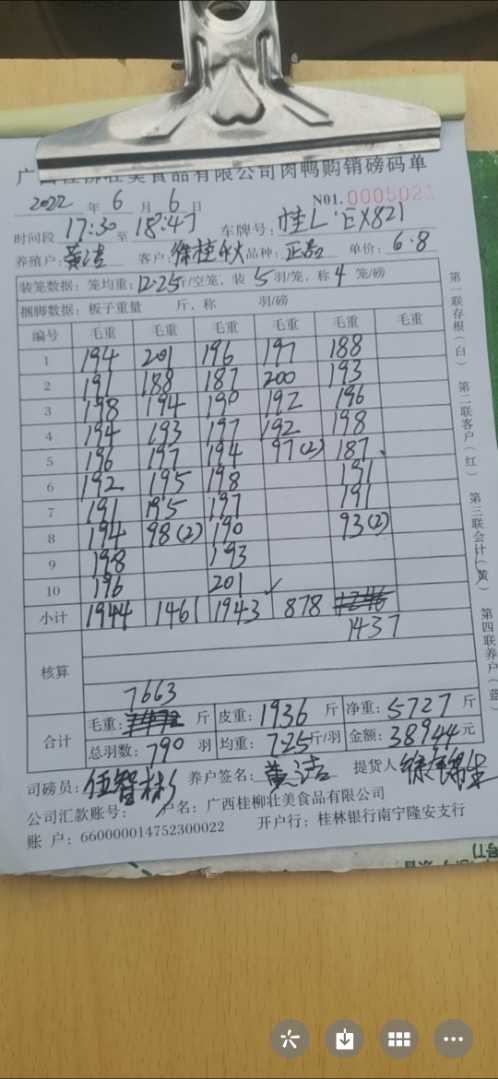 广西桂柳壮美食品有限公司肉鸭购销磅码单
2022 年 6 月 6 日 N01.0005021
时间段 17:30 至 18:47 车牌号: 桂L·EX821
养殖户: 黄洁 客户: 徐桂秋 品种: 正品 单价: 6.8
装笼数据: 笼均重: 12.25斤/空笼, 装 5 羽/笼, 称 4 笼/磅
捆脚数据: 板子重量 斤, 称 羽/磅
编号 毛重 毛重 毛重 毛重 毛重 毛重
1 194 201 196 197 188
2 191 188 187 200 193
3 198 194 190 192 196
4 194 193 197 192 198
5 196 197 194 97(2) 187
6 192 195 198 191
7 191 195 197 191
8 194 98(2) 190 93(2)
9 198 193
10 196 201 ✓
小计 1944 1461 1943 878
1437
核算
7663
合计 毛重: 斤 皮重: 1936 斤 净重: 5727 斤
总羽数: 790 羽 均重: 7.25斤/羽 金额: 38944元
司磅员: 养户签名: 黄洁 提货人
公司汇款账号: 户名: 广西桂柳壮美食品有限公司
账 户: 660000014752300022 开户行: 桂林银行南宁隆安支行
第一联存根(白) 第二联客户(红) 第三联会计(黄) 第四联养户(蓝)